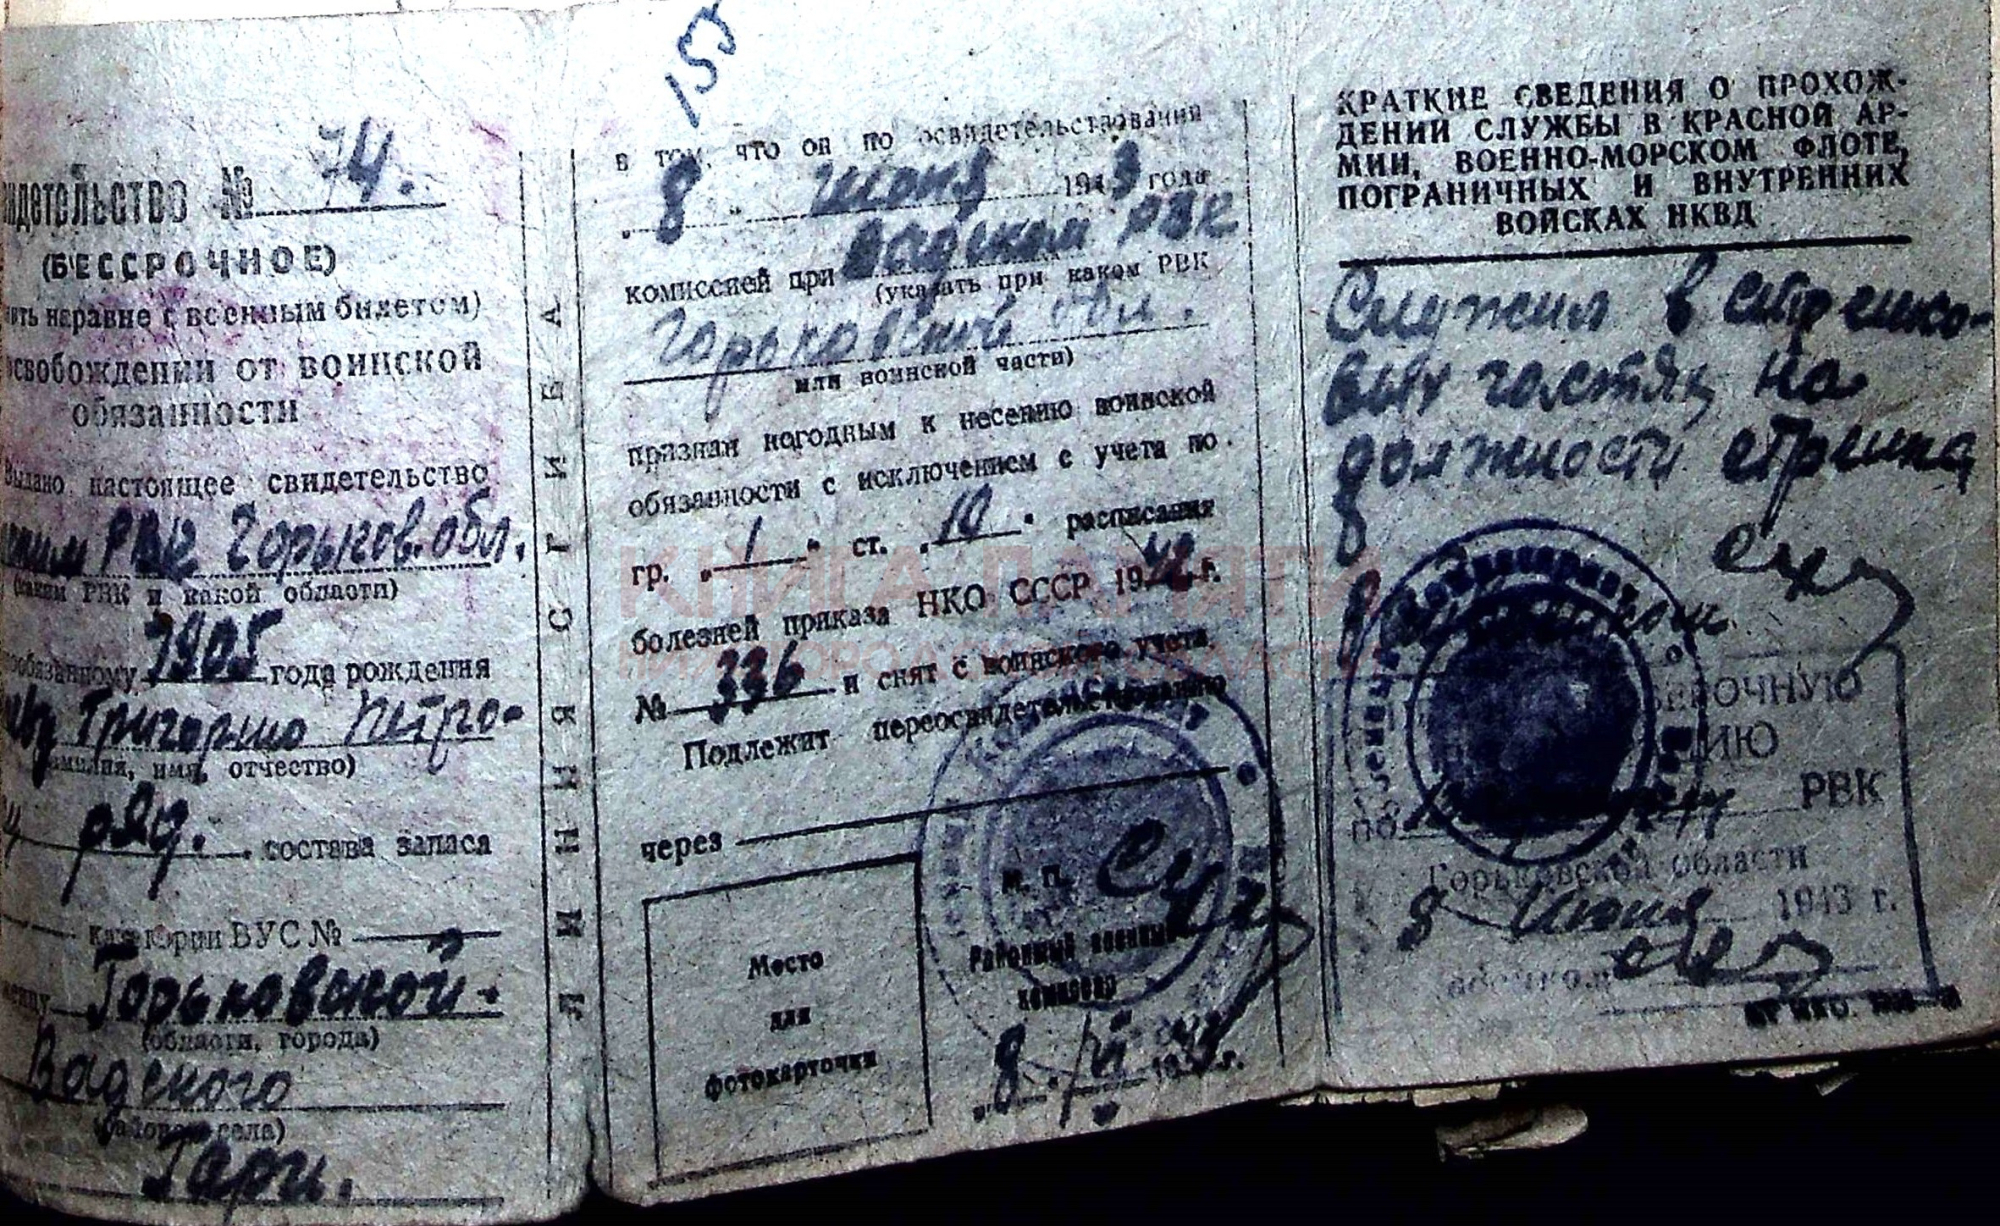 155
идетельство № 74.
(БЕССРОЧНОЕ)
ить наравне с военным билетом)
свобождении от воинской
обязанности
Выдано настоящее свидетельство
РВК Горьков. обл.
(каким РВК и какой области)
нообязанному 1905 года рождения
Григорию Петро-
амилия, имя, отчество)
ряд. состава запаса
категории ВУС №
женцу Горьковской
(области, города)
Вадского
(района, села)
Гари.
ЛИНИЯ СГИБА
в том, что он по освидетельствовании
„8" июня 1943 года
комиссией при Вадском РВК
(указать при каком РВК
Горьковской обл.
или воинской части)
признан негодным к несению воинской
обязанности с исключением с учета по
гр. „1" ст. „10" расписания
болезней приказа НКО СССР 1942 г.
№ 336 и снят с воинского учета.
Подлежит переосвидетельствованию
через
Место
для
фотокарточки
М. П.
Районный военный
комиссар
„8" VI 1943 г.
КРАТКИЕ СВЕДЕНИЯ О ПРОХОЖ-
ДЕНИИ СЛУЖБЫ В КРАСНОЙ АР-
МИИ, ВОЕННО-МОРСКОМ ФЛОТЕ,
ПОГРАНИЧНЫХ И ВНУТРЕННИХ
ВОЙСКАХ НКВД
Служил в стрелко-
вых частях на
должности стрелка
ВЕРОЧНУЮ
ИЮ
по РВК
Горьковской области
8 июня 1943 г.
КНИГА ПАМЯТИ
НИЖЕГОРОДСКОЙ ОБЛАСТИ